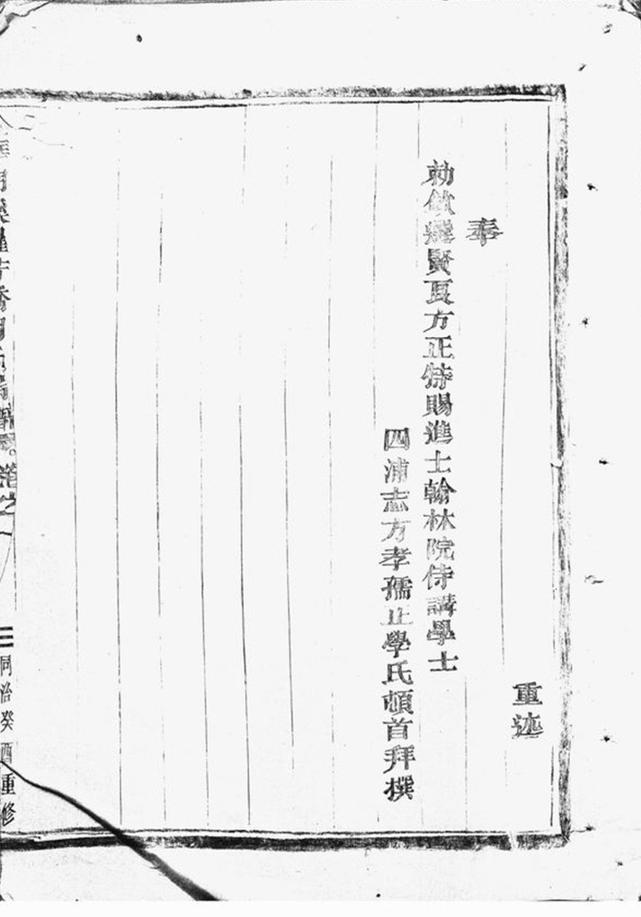 重迹
奉
勅徴選賢良方正特賜進士翰林院侍講學士
四浦志方孝孺正學氏頓首拜撰
譜 卷之一
三 同治癸酉重修